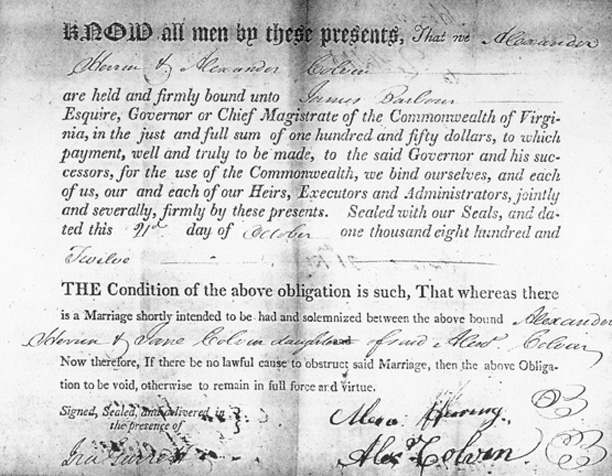 KNOW all men by these presents, That we Alexander
Herrin & Alexander Colvin
are held and firmly bound unto James Barbour
Esquire, Governor or Chief Magistrate of the Commonwealth of Virgi-
nia, in the just and full sum of one hundred and fifty dollars, to which
payment, well and truly to be made, to the said Governor and his suc-
cessors, for the use of the Commonwealth, we bind ourselves, and each
of us, our and each of our Heirs, Executors and Administrators, jointly
and severally, firmly by these presents. Sealed with our Seals, and da-
ted this 21st day of October one thousand eight hundred and
Twelve
THE Condition of the above obligation is such, That whereas there
is a Marriage shortly intended to be had and solemnized between the above bound Alexander
Herrin & Jane Colvin daughter of said Alexr Colvin
Now therefore, If there be no lawful cause to obstruct said Marriage, then the above Obliga-
tion to be void, otherwise to remain in full force and virtue.
Signed, Sealed, and delivered in
the presence of
Alexr Herring
Ira Garrett
Alexr Colvin